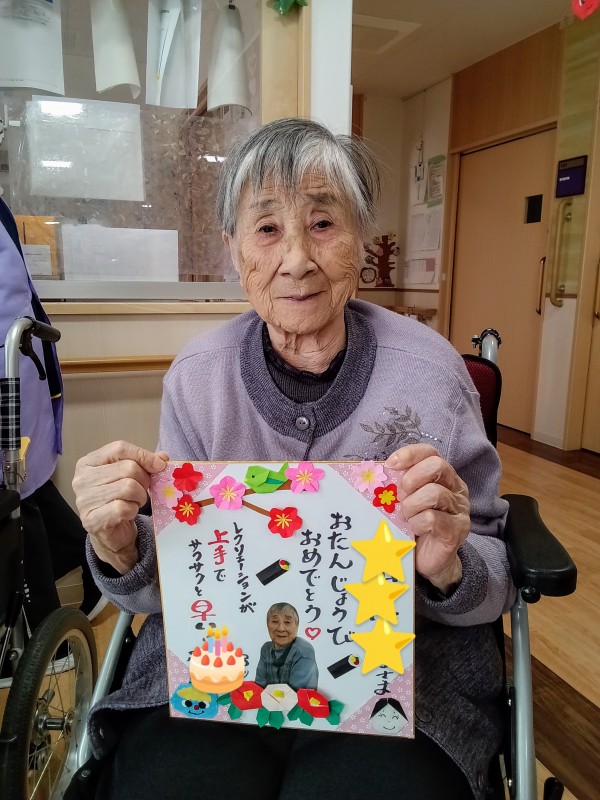 さま
おたんじょうび
おめでとう♡
レクリエーションが
上手で
サクサクと早